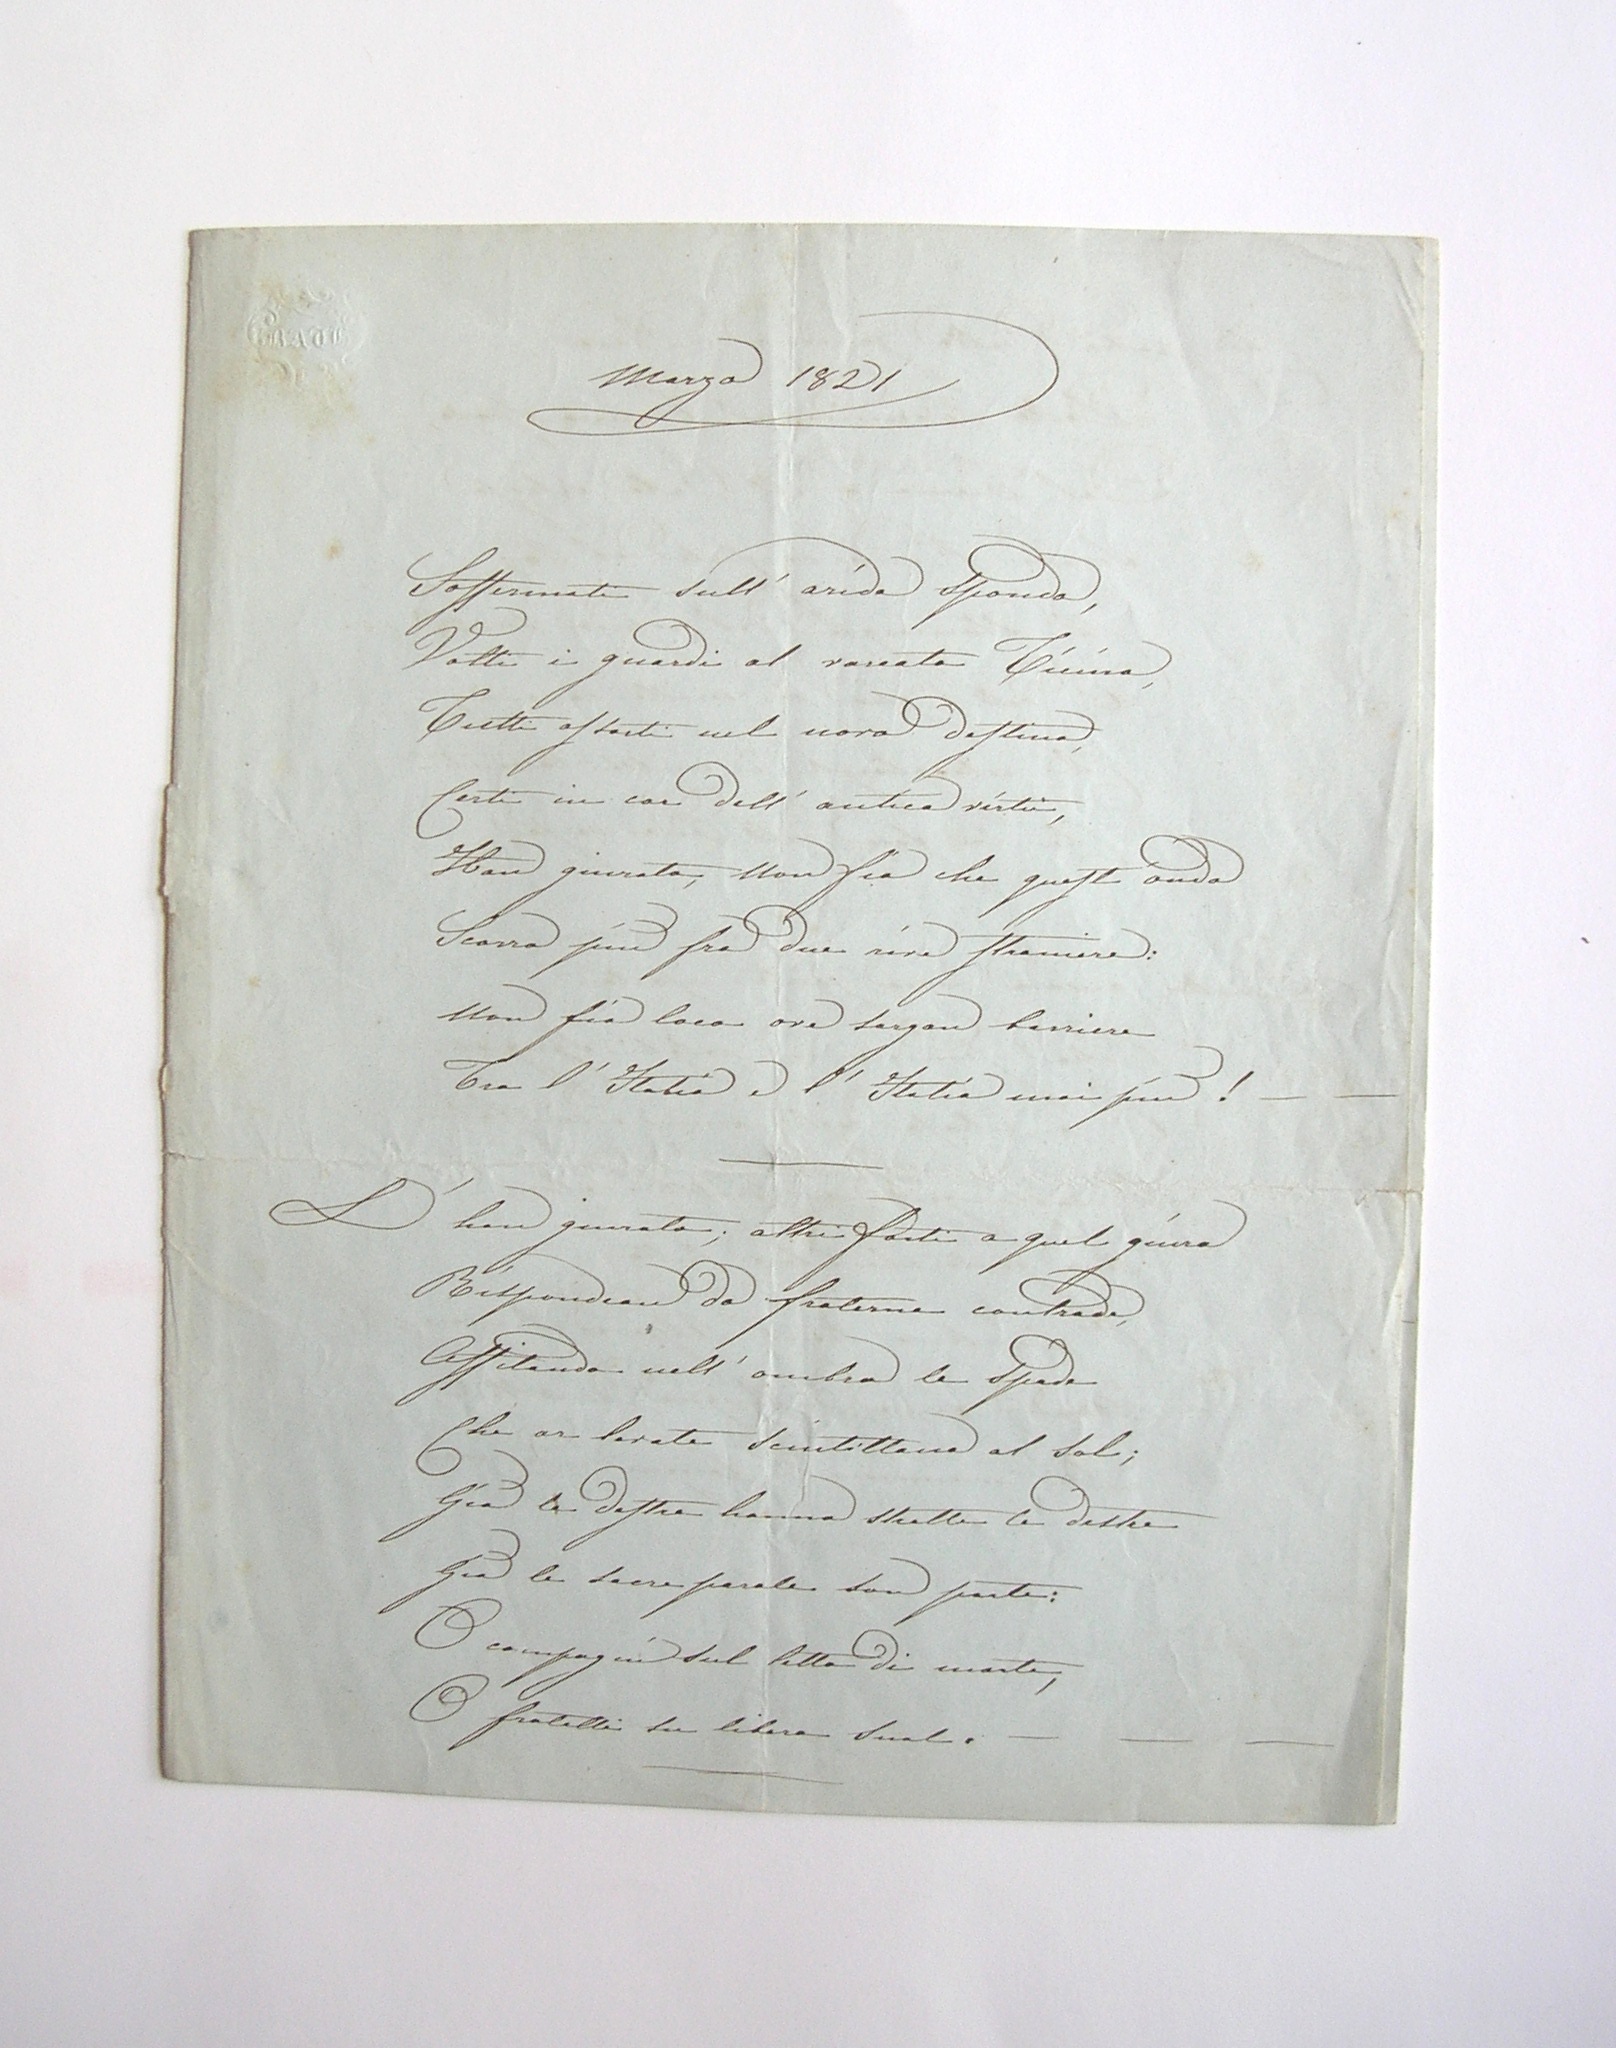 BATH
Marzo 1821
Soffermati sull' arida sponda,
Volti i guardi al varcato Ticino,
Tutti assorti nel novo destino,
Certi in cor dell' antica virtù,
Han giurato, Non fia che quest' onda
Scorra più fra due rive straniere:
Non fia loco ove sorgan barriere
Tra l' Italia e l' Italia mai più! — —
L' han giurato; altri forti a quel giuro
Rispondean da fraterne contrade,
Affilando nell' ombra le spade
Che or levate scintillano al sol;
Già le destre hanno strette le destre
Già le sacre parole son porte:
O compagni sul letto di morte,
O fratelli su libero suol. — — —